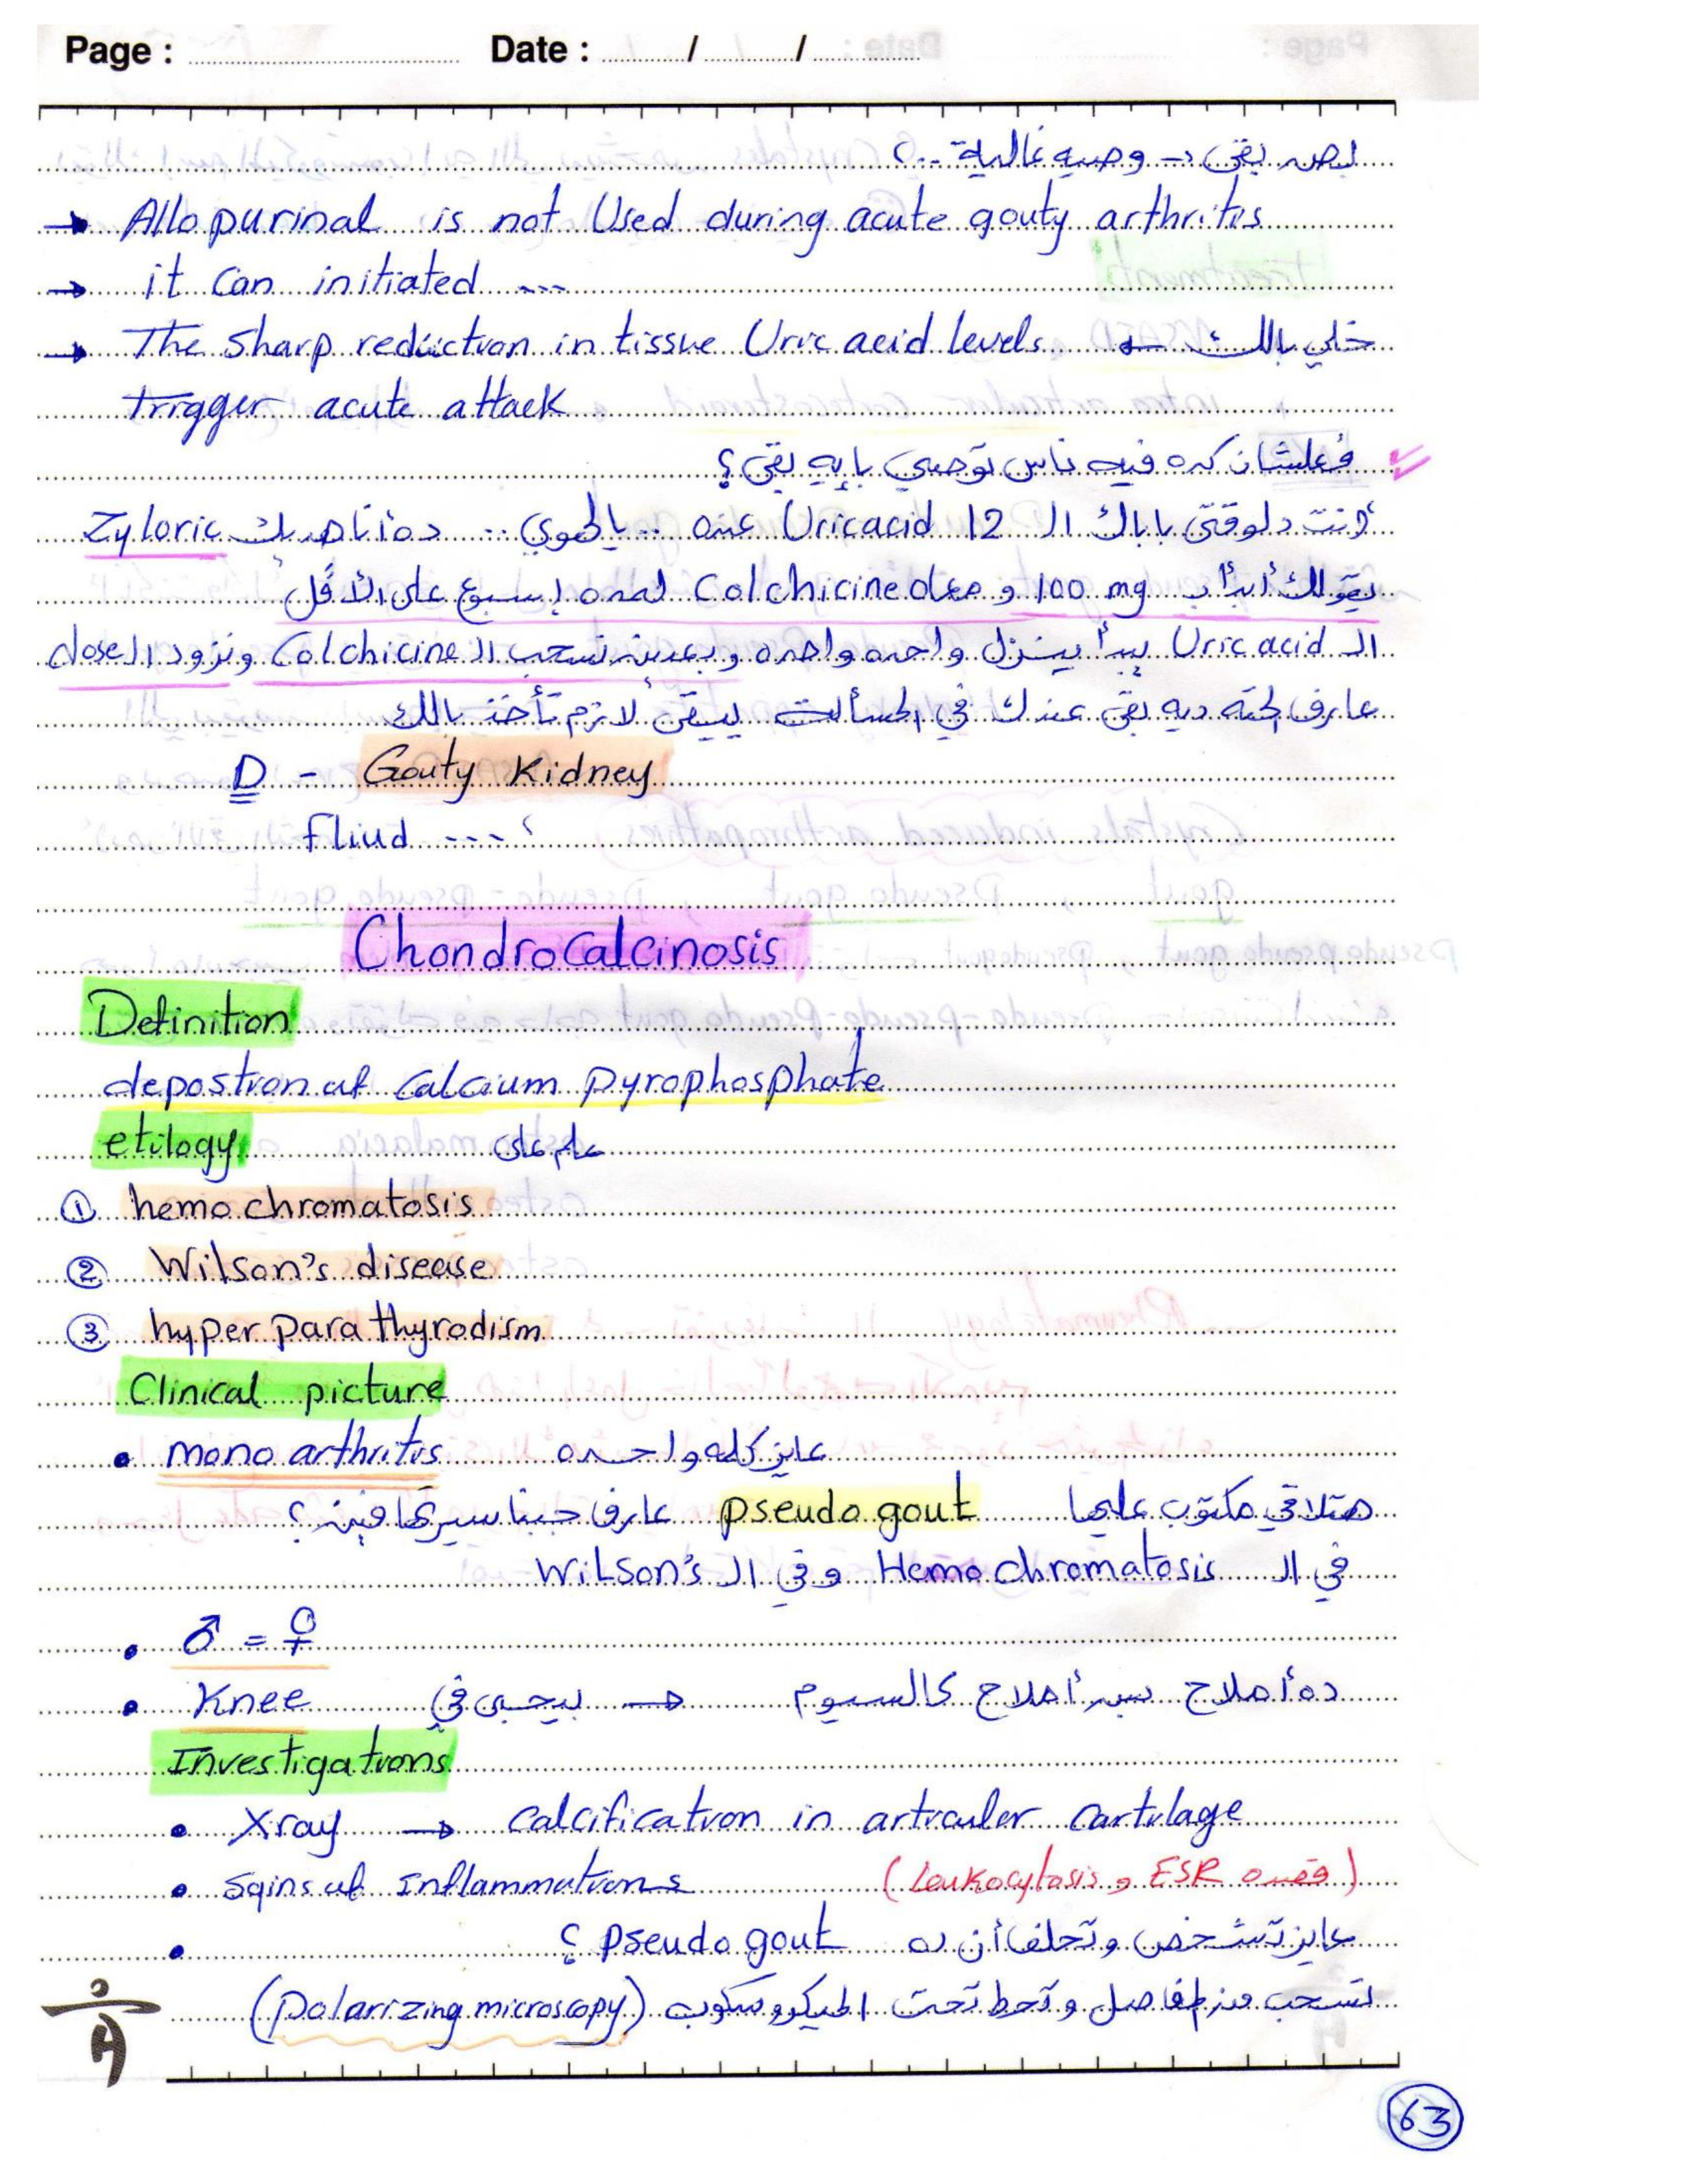 Page : Date : / /
بص بقى → وصيه غالية ..؟
→ Allopurinal is not Used during acute gouty arthritis
→ it Can initiated ---
→ The Sharp reduction in tissue Uric acid levels ← خلي بالك
trigger acute attack
فعلشان كده فيه ناس توصي بإيه بقى؟
أنت دلوقتي باباك الـ 12 Uric acid عنده .. يالهوي .. ده أنا هديك Zyloric
يقولك أبدأ بـ 100 mg و معاه Colchicine لمده إسبوع على الأقل
الـ Uric acid يبدأ ينزل واحده واحده وبعدين تسحب الـ Colchicine وتزود الـ dose
عارف الحته ديه بقى عندك في المسألة يبقى لازم تأخذ بالك
D - Gouty Kidney
Fliud ----
ChondroCalcinosis
Definition
depostion of Calcium pyrophosphate
etilogy علم على
① hemochromatosis
② Wilson's disease
③ hyper para thyrodism
Clinical picture
• mono arthritis عايز كلمه واحده
هتلاقي مكتوب عليها pseudo gout عارف جبنا سيرتها فين؟
في الـ Hemochromatosis وفي الـ Wilson's
• ♂ = ♀
• Knee ده أملاح بس أملاح كالسيوم → بيحبى في
Investigations
• Xray → Calcification in articuler Cartilage
• Sgins of Inflammations (Leukocytosis و ESR وقصده)
• عايز تشخص وتحلف أن ده pseudo gout ؟
تسحب من المفاصل وتحط تحت الميكروسكوب (polarizing microscopy)
63